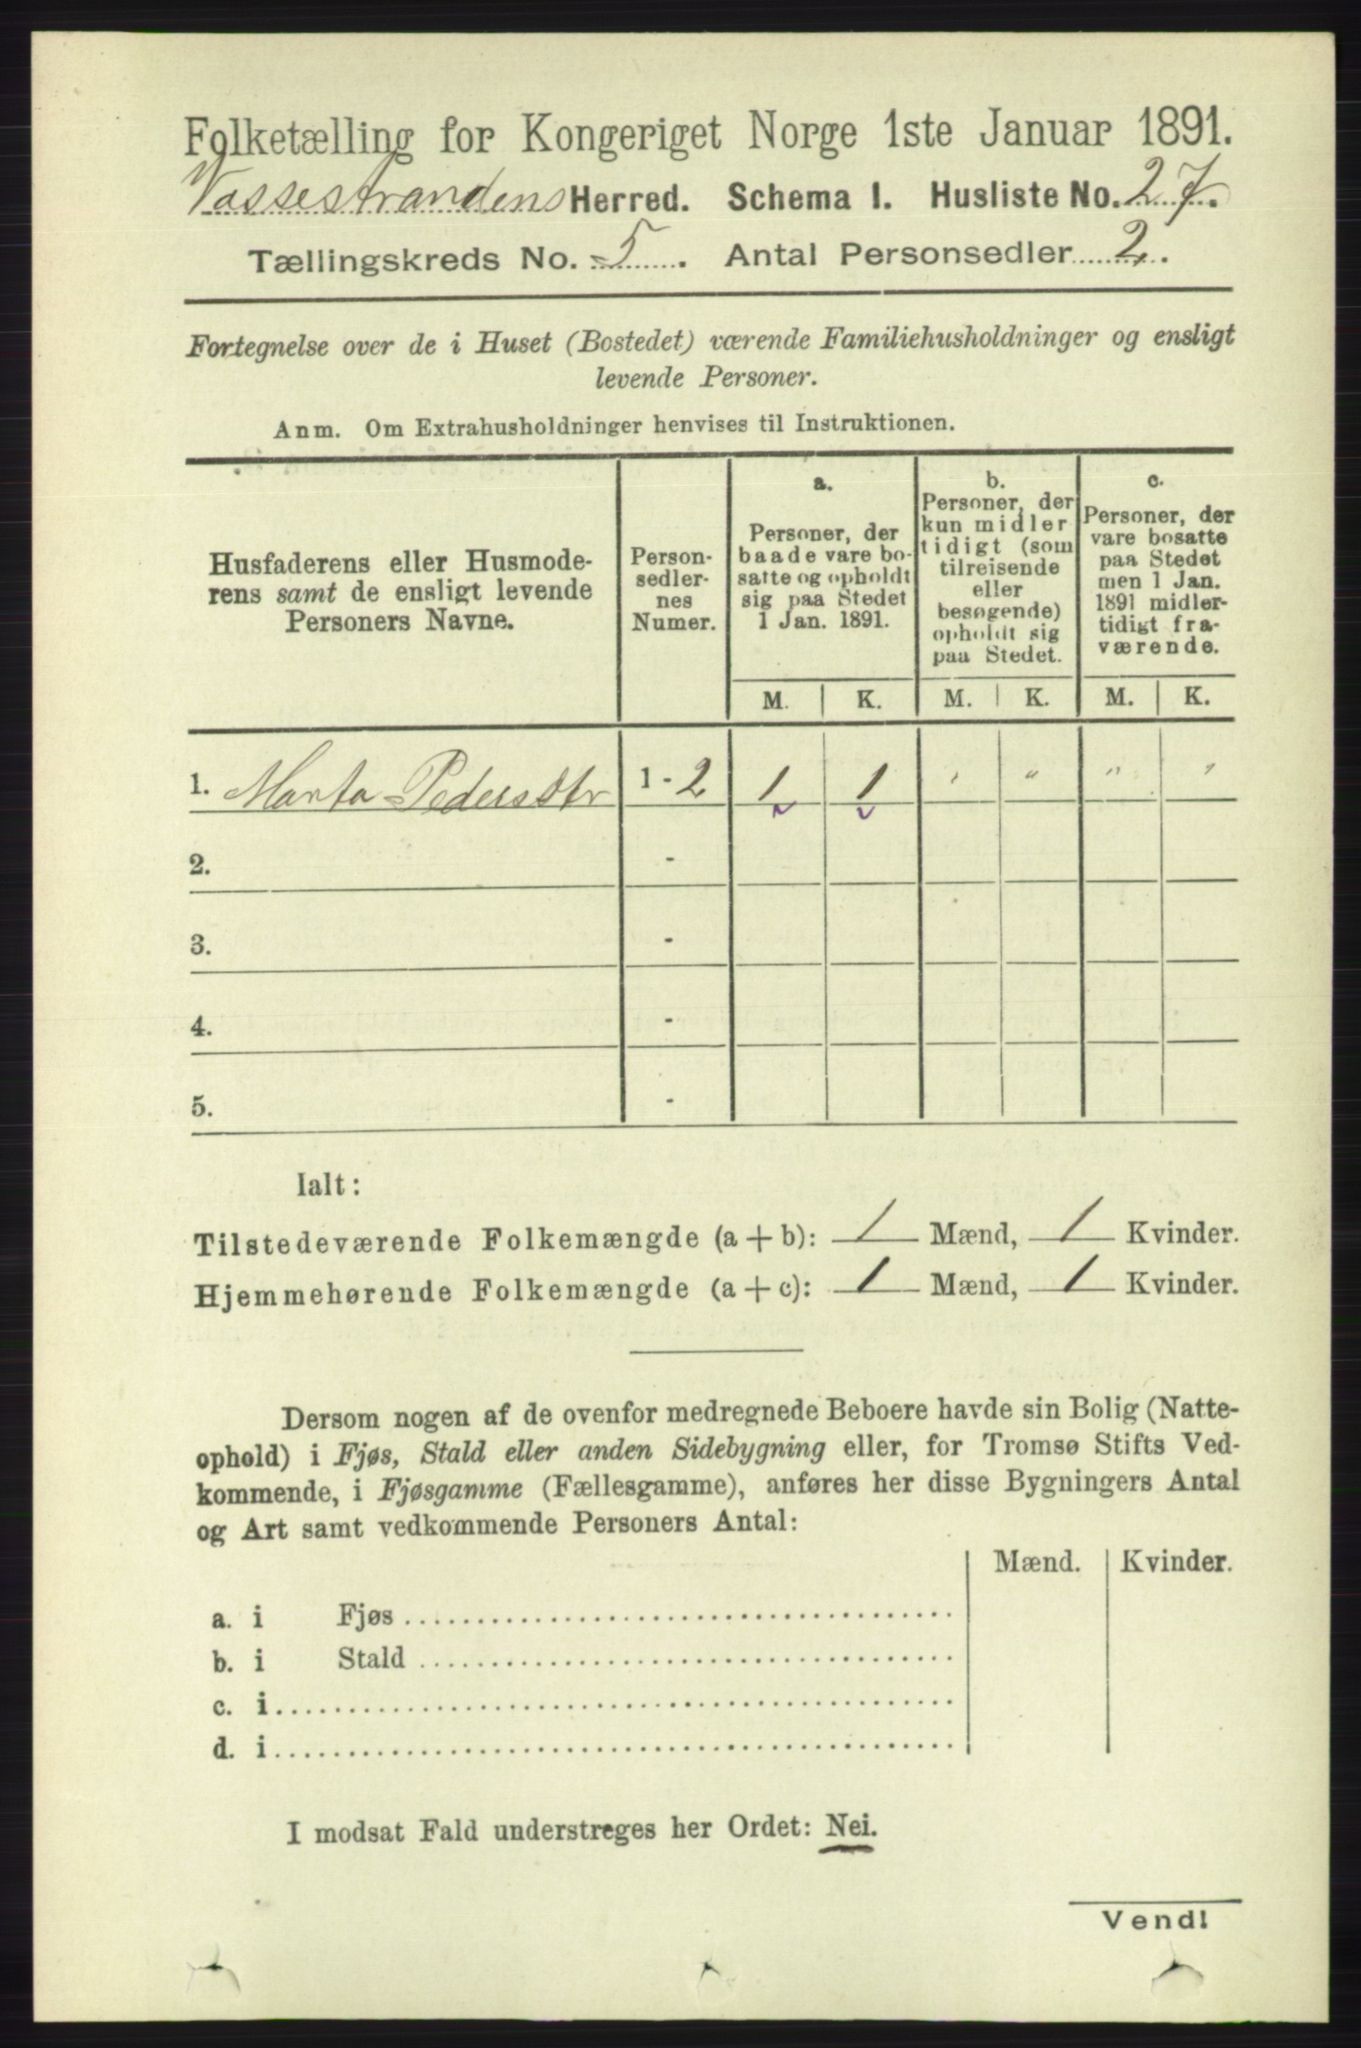 Folketælling for Kongeriget Norge 1ste Januar 1891.
Vossestrandens Herred. Schema 1. Husliste No. 27.
Tællingskreds No. 5. Antal Personsedler 2.
Fortegnelse over de i Huset (Bostedet) værende Familiehusholdninger og ensligt
levende Personer.
Anm. Om Extrahusholdninger henvises til Instruktionen.
Husfaderens eller Husmode-
rens samt de ensligt levende
Personers Navne.
Person-
sedler-
nes
Numer.
a.
Personer, der
baade vare bo-
satte og opholdt
sig paa Stedet
1 Jan. 1891.
b.
Personer, der
kun midler
tidigt (som
tilreisende
eller
besøgende)
opholdt sig
paa Stedet.
c.
Personer, der
vare bosatte
paa Stedet
men 1 Jan.
1891 midler-
tidigt fra-
værende.
M. K. M. K. M. K.
1. Marta Pedersdtr 1 - 2 1 1 " " " "
2. -
3. -
4. -
5. -
Ialt:
Tilstedeværende Folkemængde (a + b): 1 Mænd, 1 Kvinder.
Hjemmehørende Folkemængde (a + c): 1 Mænd, 1 Kvinder.
Dersom nogen af de ovenfor medregnede Beboere havde sin Bolig (Natte-
ophold) i Fjøs, Stald eller anden Sidebygning eller, for Tromsø Stifts Ved-
kommende, i Fjøsgamme (Fællesgamme), anføres her disse Bygningers Antal
og Art samt vedkommende Personers Antal:
Mænd. Kvinder.
a. i Fjøs
b. i Stald
c. i
d. i
I modsat Fald understreges her Ordet: Nei.
Vend!